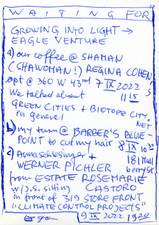 WAITING FOR
GROWING INTO LIGHT →
EAGLE VENTURE
a) our coffee @ SHAMAN
(CHAWOMAN!) REGINA COHEN
opt @ 360 W 43rd 7 IX 2022
We talked about 11 15
GREEN CITIES + BIOTOPE CITY
in general NET
b) my turn @ BARBER'S BLUE
POINT to cut my hair 8 IX
c) Anna Schlesinger +
WERNER PICHLER
from ESTATE ROSEMARIE
CASTORO
in front of 319 STORE FRONT
"CLIMATE CONTROL PROJECTS"
9 IX 2022 1920